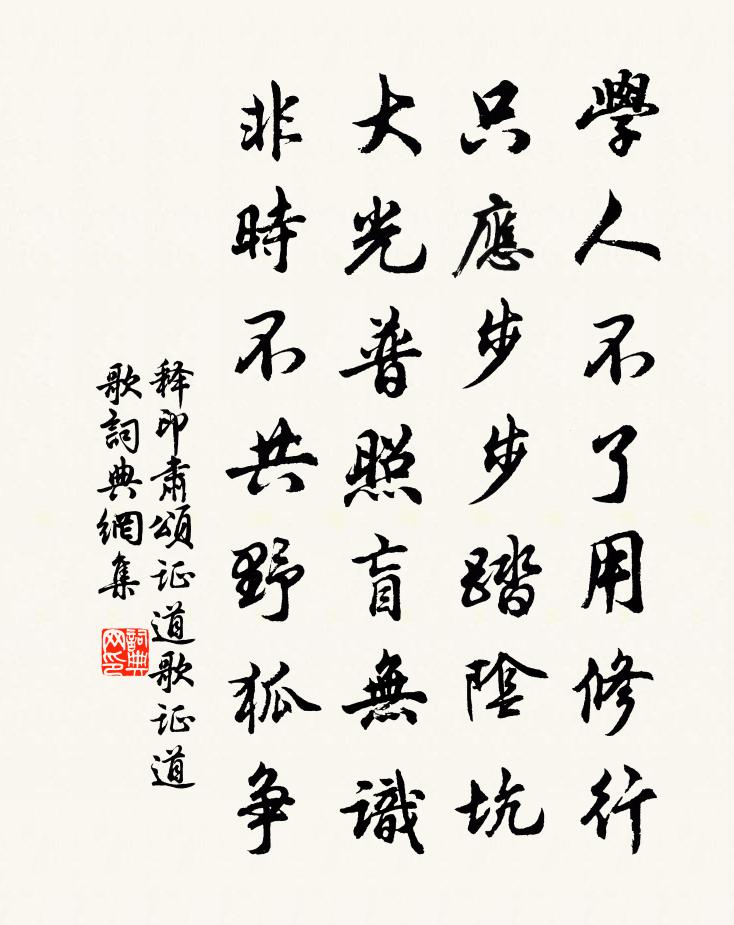 學人不了用修行
只應步步踏陰坑
大光普照盲無識
非時不共野狐爭
释印肃頌证道歌证道
歌詞典網集
詞典网印